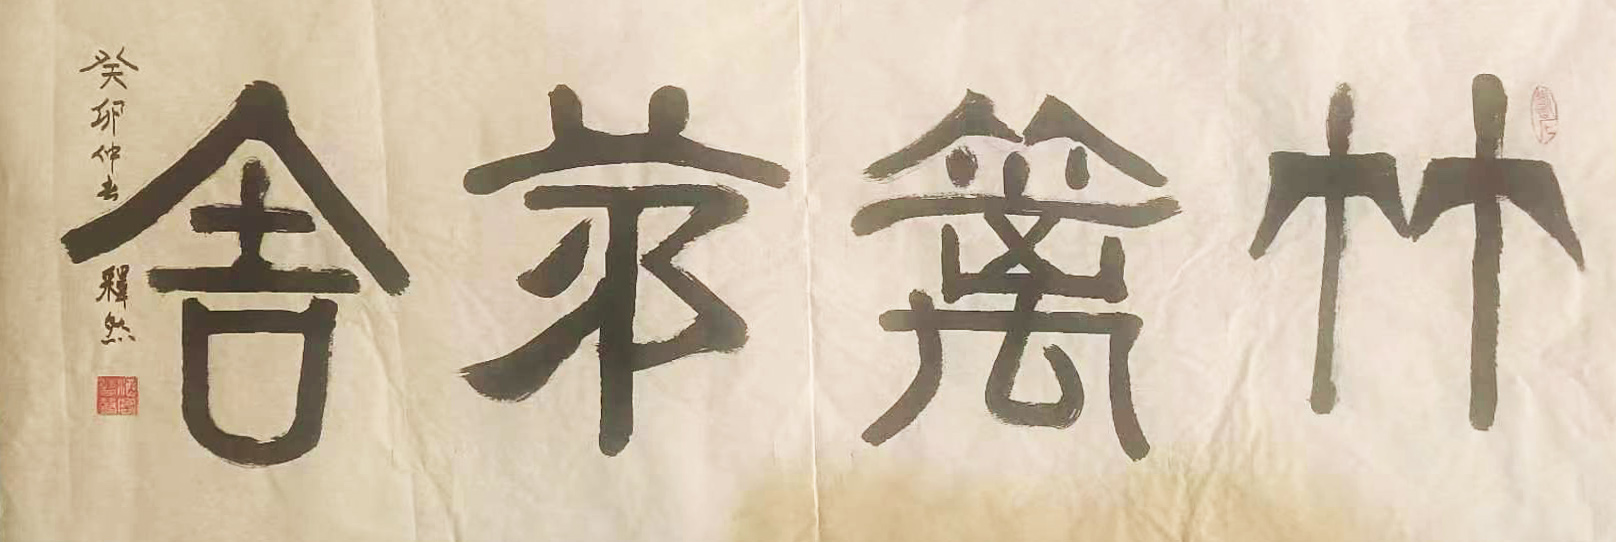 竹籬茅舍
癸卯仲冬 釋然